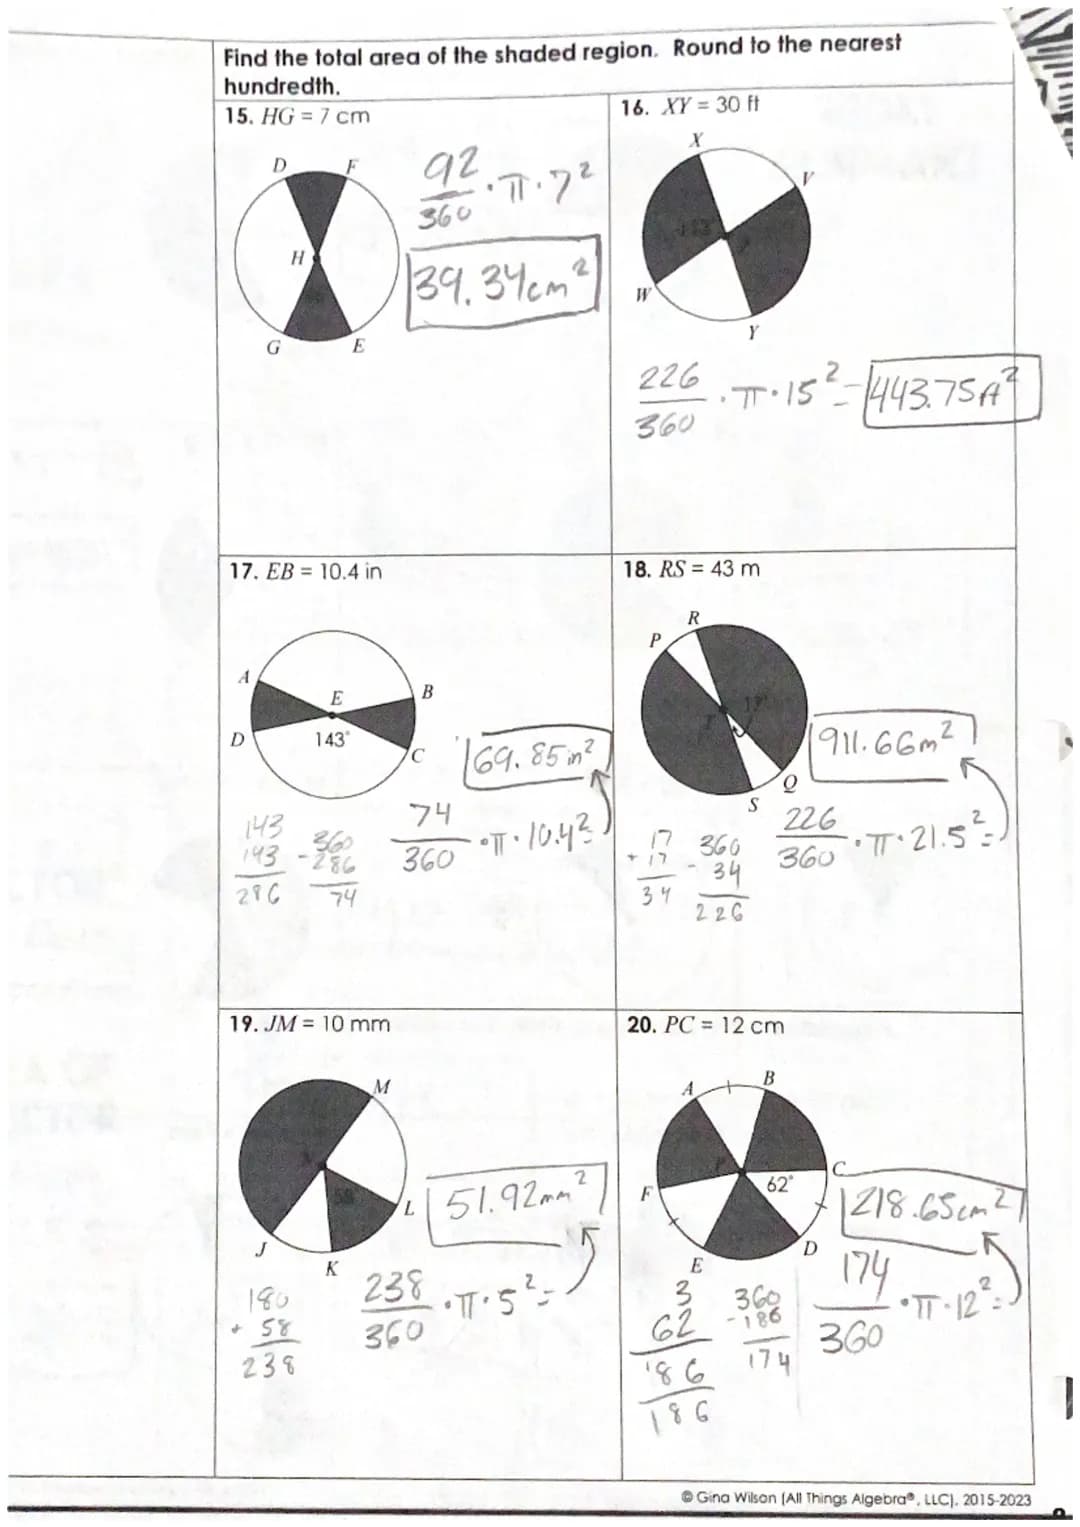 Find the total area of the shaded region. Round to the nearest
hundredth.
15. HG = 7 cm
D
F
H
G
E
92/360 · π · 7²
39.34cm²
16. XY = 30 ft
X
V
W
Y
226/360 · π · 15² = 443.75ft²
17. EB = 10.4 in
A
E
B
D
143°
C
69.85in²
143
143
286
360
-286
74
74/360 · π · 10.4² =
18. RS = 43 m
R
P
17°
T
Q
S
911.66m²
17
+17
34
360
- 34
226
226/360 · π · 21.5² =
19. JM = 10 mm
M
58°
L
J
K
51.92mm²
180
+ 58
238
238/360 · π · 5² =
20. PC = 12 cm
A
B
P
C
62°
F
D
E
218.65cm²
3
62
186
186
360
-186
174
174/360 · π · 12² =
© Gina Wilson (All Things Algebra®, LLC), 2015-2023